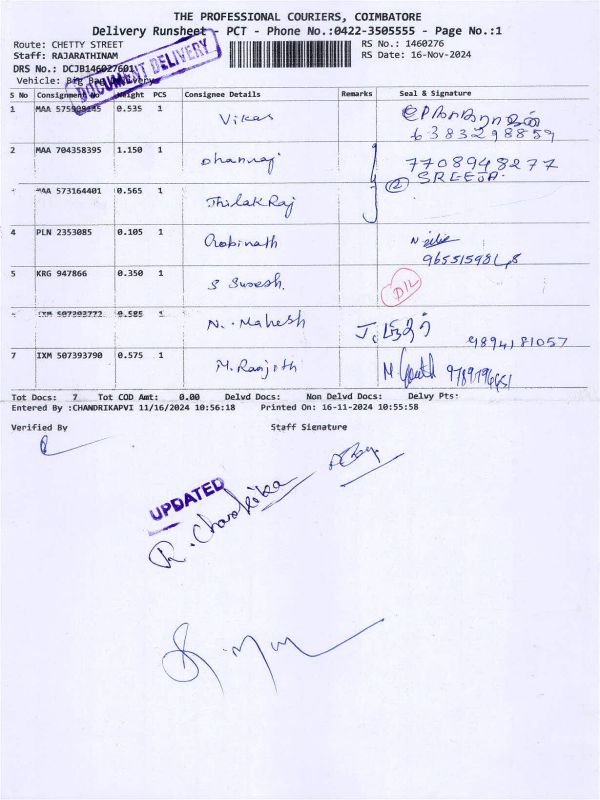 THE PROFESSIONAL COURIERS, COIMBATORE
Delivery Runsheet - PCT - Phone No.:0422-3505555 - Page No.:1
Route: CHETTY STREET RS No.: 1460276
Staff: RAJARATHINAM RS Date: 16-Nov-2024
DRS No.: DCJB146027601
DOCUMENT DELIVERY
Vehicle:
S No Consignment No Weight PCS Consignee Details Remarks Seal & Signature
1 MAA 0.535 1 Vikas
6383298859
2 MAA 704358395 1.150 1 Dhanraj 7708948277
(2) SREEJA.
MAA 573164401 0.565 1 ThilakRaj
4 PLN 2353085 0.105 1 Gobinath
5 KRG 947866 0.350 1 S Suresh. D/L
IXM 507393772 0.585 1 N. Mahesh 9894181057
7 IXM 507393790 0.575 1 M. Ranjith
Tot Docs: 7 Tot COD Amt: 0.00 Delvd Docs: Non Delvd Docs: Delvy Pts:
Entered By :CHANDRIKAPVI 11/16/2024 10:56:18 Printed On: 16-11-2024 10:55:58
Verified By Staff Signature
UPDATED
R. Chandrika